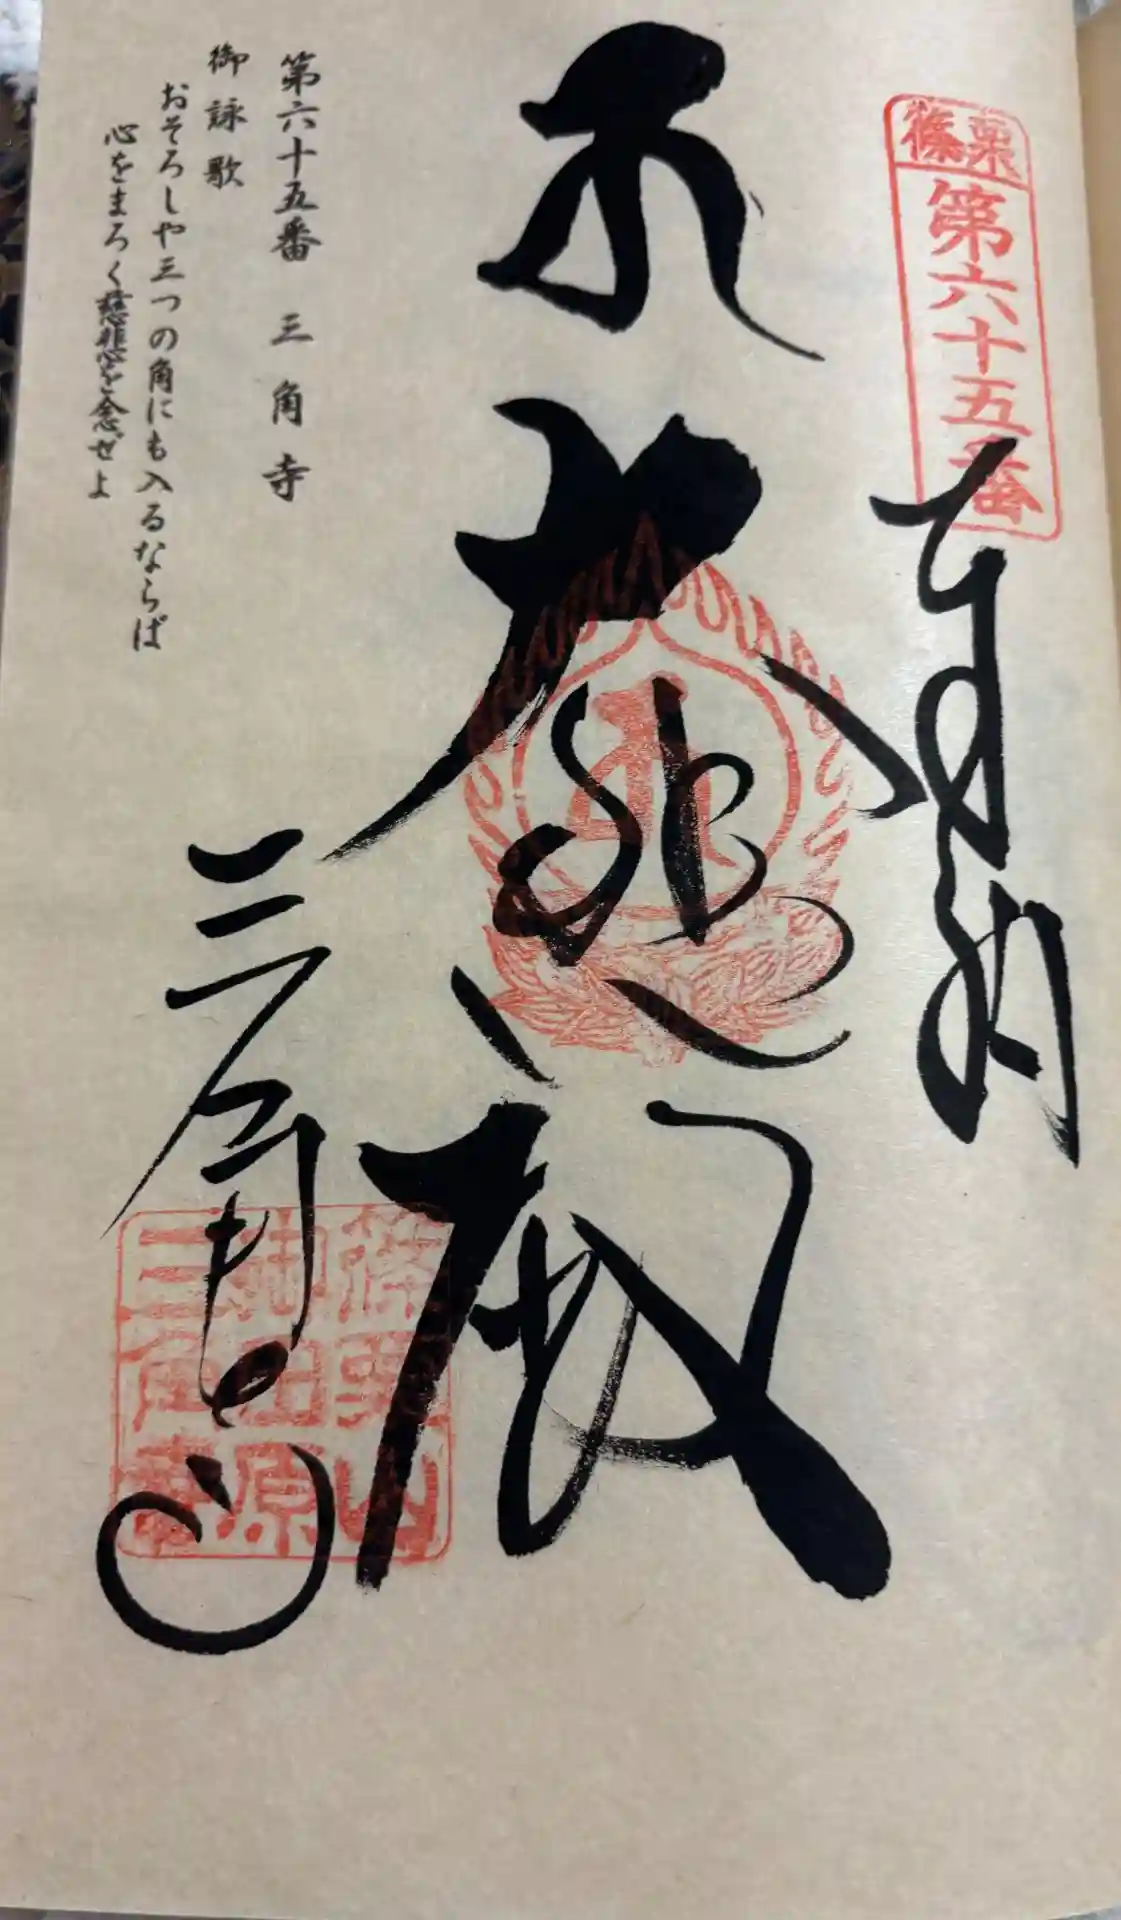 篠栗
第六十五番
奉納
大悲殿
三角寺
篠栗山
田原
三角寺
第六十五番 三角寺
御詠歌
おそろしや三つの角にも入るならば
心をまろく慈悲を念ぜよ